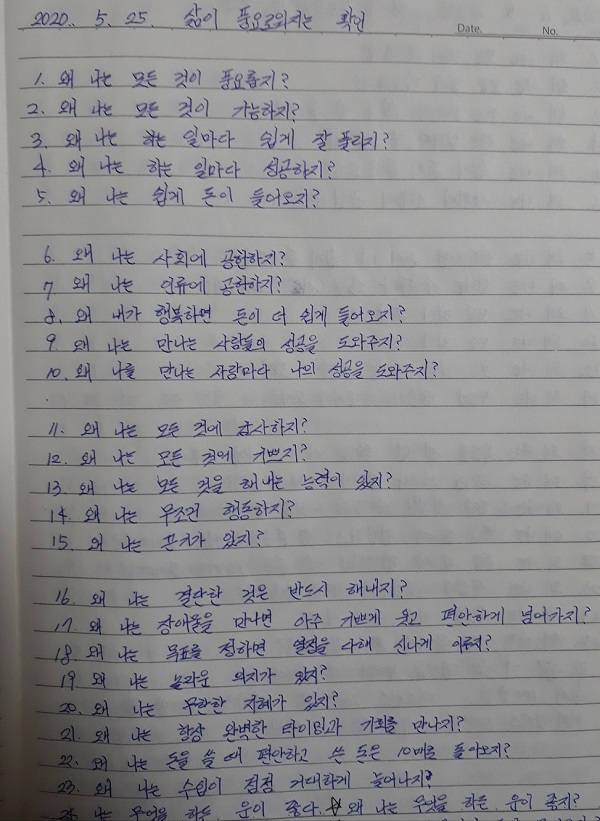 2020. 5. 25. 삶이 풍요로워지는 확언
Date. No.
1. 왜 나는 모든 것이 풍요롭지?
2. 왜 나는 모든 것이 가능하지?
3. 왜 나는 하는 일마다 쉽게 잘 풀리지?
4. 왜 나는 하는 일마다 성공하지?
5. 왜 나는 쉽게 돈이 들어오지?
6. 왜 나는 사회에 공헌하지?
7 왜 나는 인류에 공헌하지?
8. 왜 내가 행복하면 돈이 더 쉽게 들어오지?
9. 왜 나는 만나는 사람들의 성공을 도와주지?
10. 왜 나를 만나는 사람마다 나의 성공을 도와주지?
11. 왜 나는 모든 것에 감사하지?
12. 왜 나는 모든 것에 기쁘지?
13. 왜 나는 모든 것을 해내는 능력이 있지?
14. 왜 나는 무조건 행동하지?
15. 왜 나는 끈기가 있지?
16. 왜 나는 결단한 것은 반드시 해내지?
17. 왜 나는 장애물을 만나면 아주 기쁘게 웃고 편안하게 넘어가지?
18. 왜 나는 목표를 정하면 열정을 다해 신나게 이루지?
19. 왜 나는 놀라운 의지가 있지?
20. 왜 나는 무한한 지혜가 있지?
21. 왜 나는 항상 완벽한 타이밍과 기회를 만나지?
22. 왜 나는 돈을 쓸 때 편안하고 쓴 돈은 10배로 돌아오지?
23. 왜 나는 수입이 점점 거대하게 늘어나지?
24. 나는 무엇을 하든 운이 좋다. ☆ 왜 나는 무엇을 하든 운이 좋지?